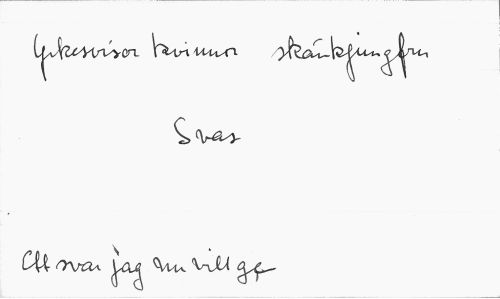 Yrkesvisor kvinnor skänkjungfru
Svar
Ett svar jag nu vill ge